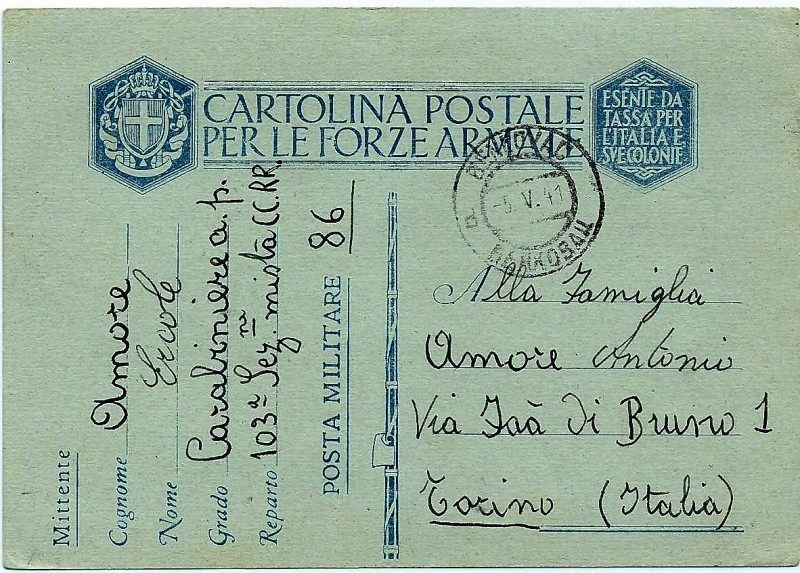 CARTOLINA POSTALE
PER LE FORZE ARMATE
ESENTE DA
TASSA PER
L'ITALIA E
SVE COLONIE
-5. V. 41
Alla Famiglia
Amore Antonio
Via Faà di Bruno 1
Torino (Italia)
Mittente
Cognome Amore
Nome Ercole
Grado Carabiniere a. p.
Reparto 103ª Sez.ne mista CC. RR.
POSTA MILITARE 86